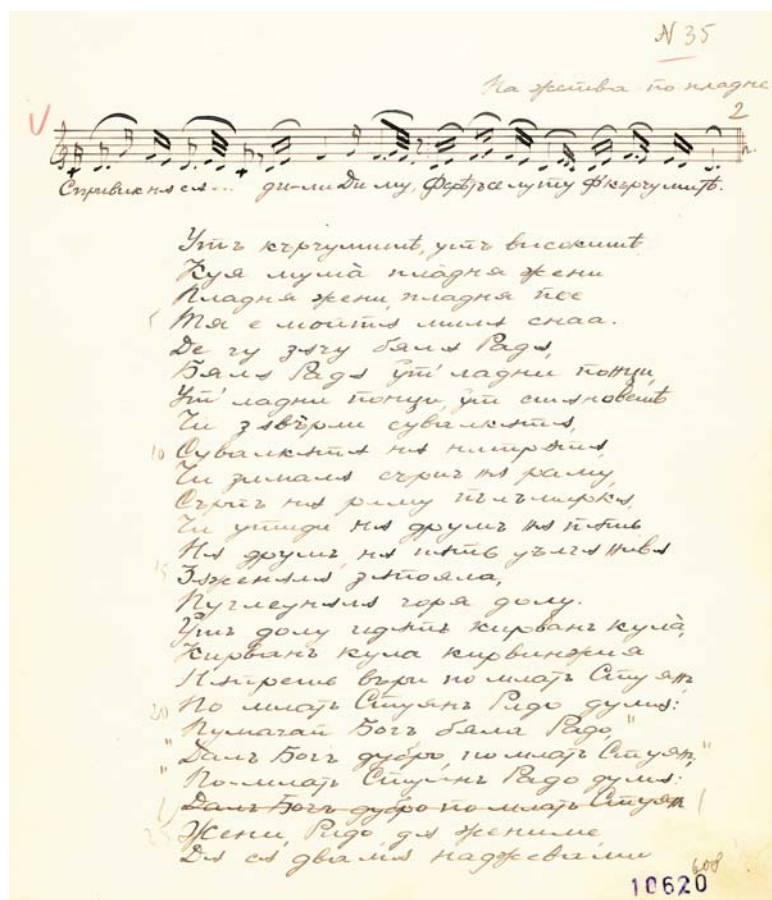 N 35
На жетва по пладне
2
Спривикнася... ди-ли Диму, Фсрѣтъселуту Ф'кърчумитѣ.
Утъ кърчумитѣ, утъ високитѣ
Куя мума̀ пладня жени
Пладня жени, пладня пое
Тя е мойтъ милъ снаа.
Де гу зачу бяла Рада,
Бяла Рада ут' ладни понци,
Ут' ладни понци, ут
Чи звърли сувалката,
10 Сувалката на
Чи зимала сърпъ на раму,
Сърпъ на раму
Чи утиди на друмъ на пать
На друмъ, на пать, нива
15 Заженала, запояла,
Пуглеунала горя долу.
Утъ долу идатъ кирванъ кула̀,
Кирванъ кула кирвинжия
Напрешь въри по младъ Стуянъ,
20 По младъ Стуянъ Радо дума:
Пумагай Богъ бяла Радо,"
"Далъ Богъ дубро, по младъ Стуян,"
"По-младъ Стуянъ Радо дума:
Далъ Богъ дубро по младъ Стуян
25 Жени, Радо да жениме
Да са двама наджевами
608
10620